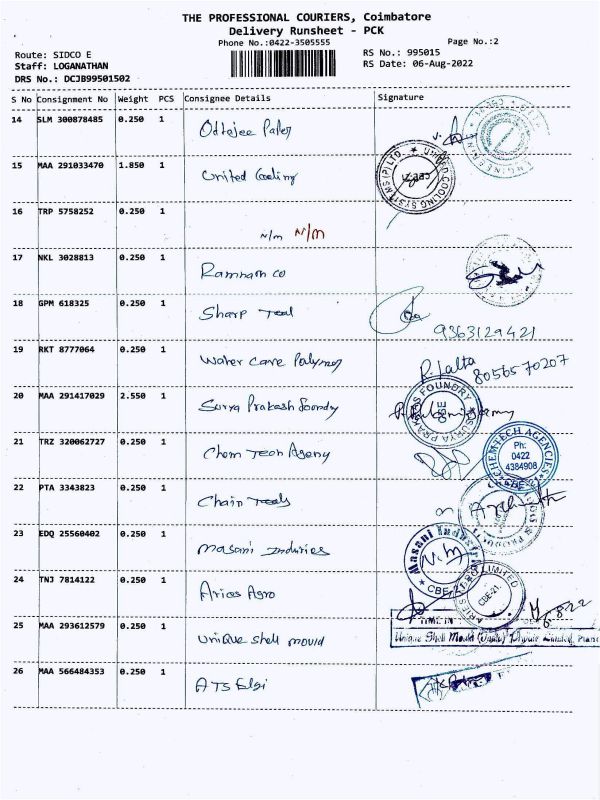 THE PROFESSIONAL COURIERS, Coimbatore
Delivery Runsheet - PCK
Phone No.:0422-3505555
Page No.:2
Route: SIDCO E
RS No.: 995015
Staff: LOGANATHAN
RS Date: 06-Aug-2022
DRS No.: DCJB99501502
S No Consignment No Weight PCS Consignee Details Signature
14 SLM 300878485 0.250 1
15 MAA 291033470 1.850 1 United Cooling
UNITED COOLING SYSTEMS (P) LTD.
16 TRP 5758252 0.250 1 N/M N/M
17 NKL 3028813 0.250 1 Ramnam co
18 GPM 618325 0.250 1 Sharp Tool
9363129421
19 RKT 8777064 0.250 1 Water care Polymer
R. Lalta 8056570207
20 MAA 291417029 2.550 1 Surya Prakash foondry
SURYA PRAKASH FOUNDRY CBE
21 TRZ 320062727 0.250 1 Chem Tech Agency
CHEMTECH AGENCIES Ph: 0422 4384908 CBE
22 PTA 3343823 0.250 1 Chain
23 EDQ 25560402 0.250 1 Masani Induries
Masani Industri CBE
24 TNJ 7814122 0.250 1 Aries Agro
ARIES AGRO LIMITED CBE-21.
25 MAA 293612579 0.250 1 Unique shell mould
TIME IN
Unique Shell Mould (India) Private Limited,
26 MAA 566484353 0.250 1 ATS Elgi